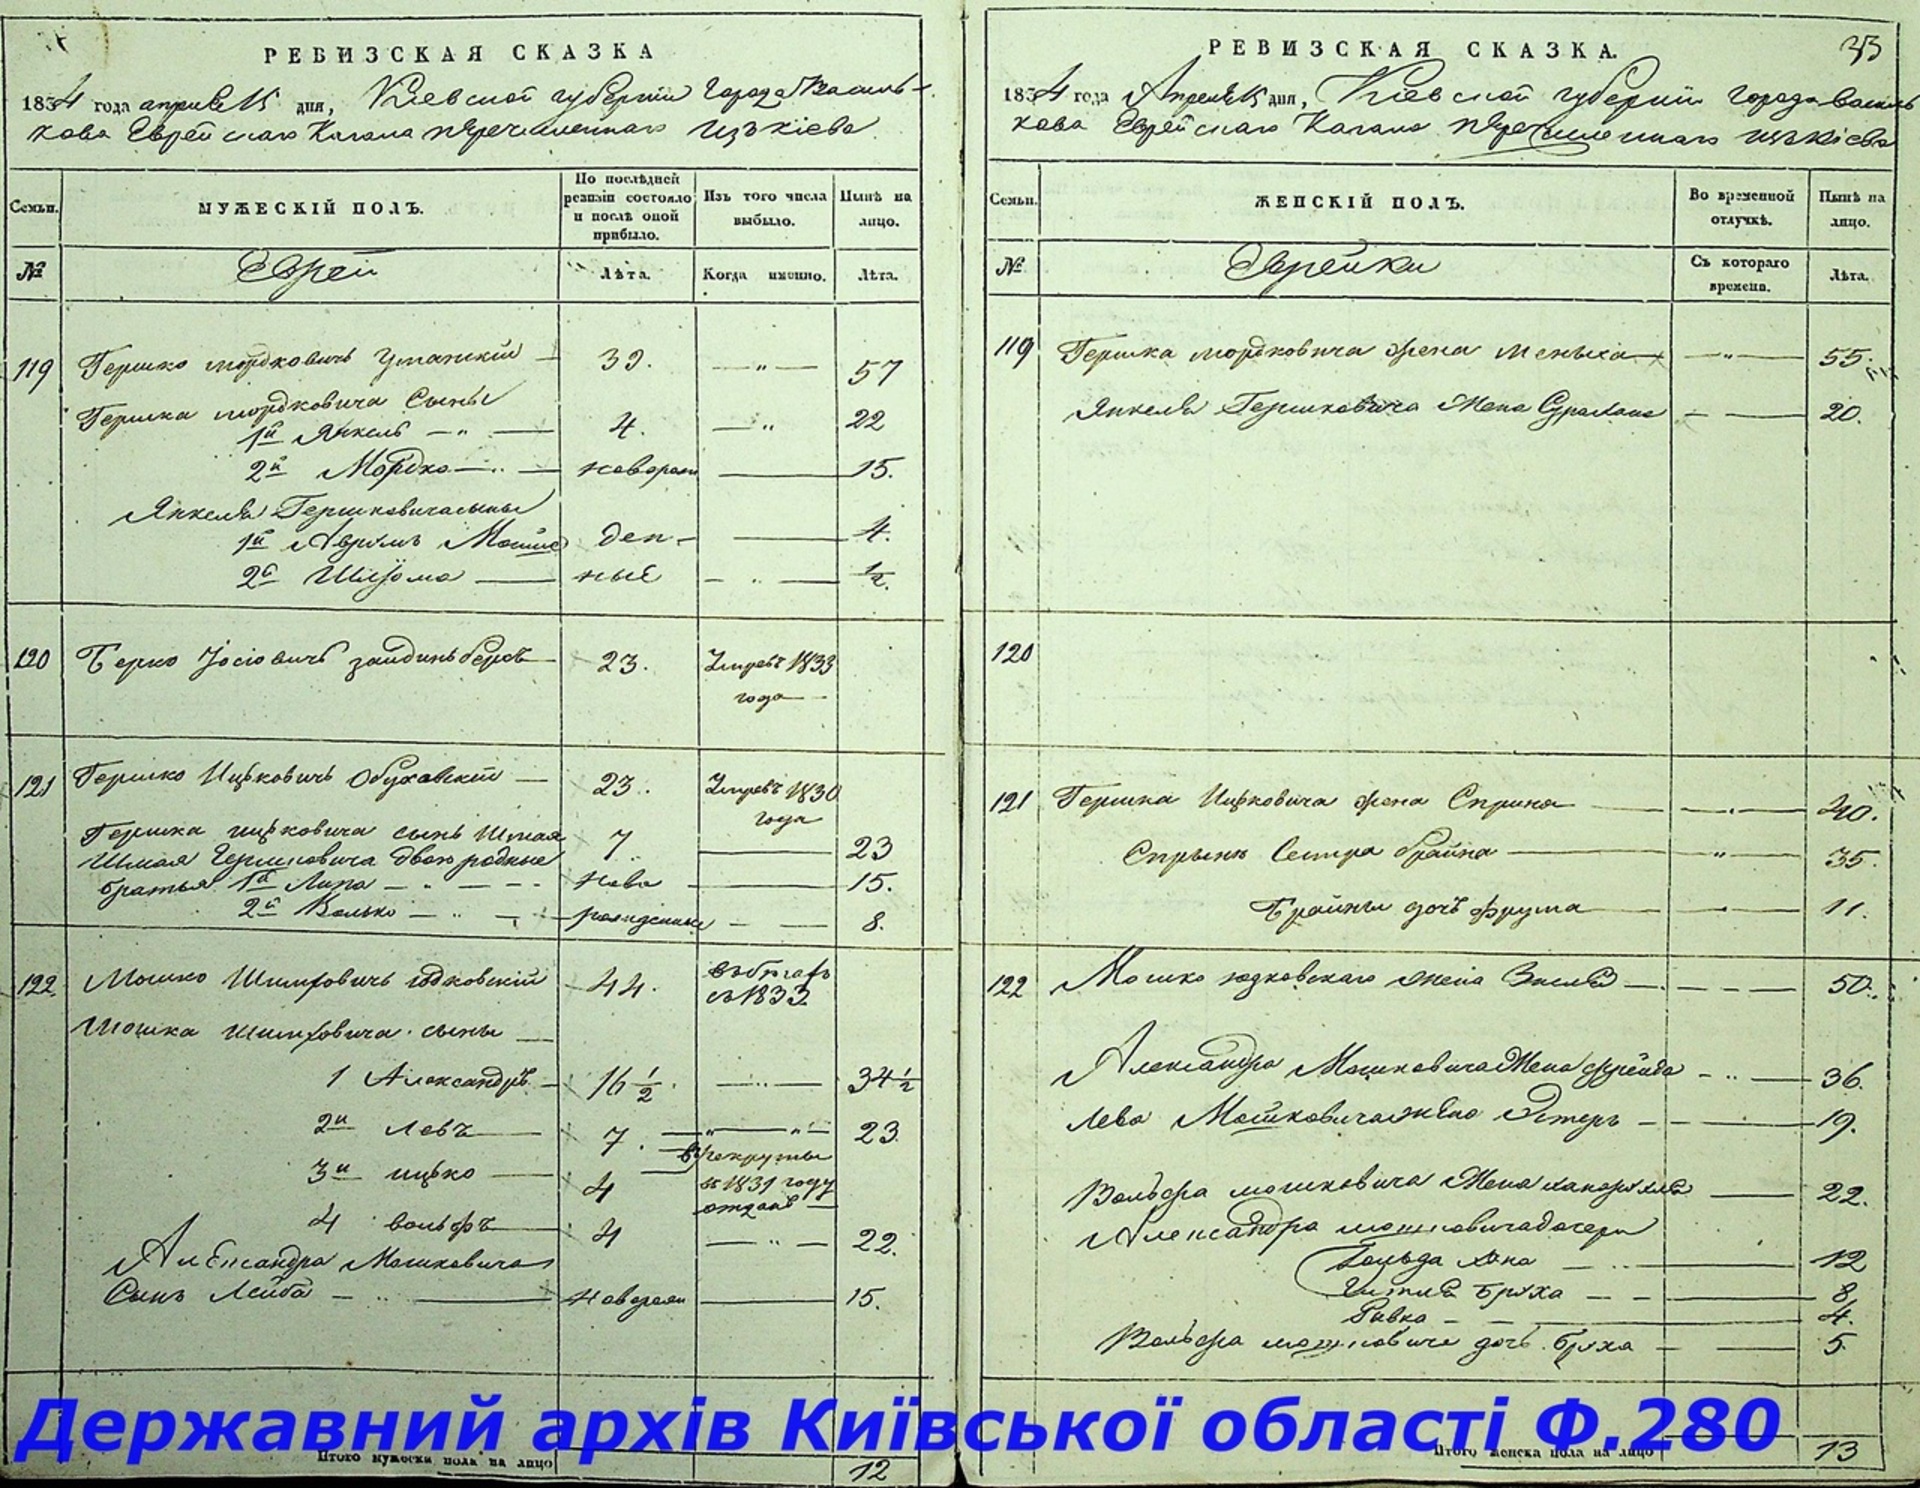 РЕВИЗСКАЯ СКАЗКА
1834 года апреля 15 дня, Киевской губернии Города Василь-
кова Еврейскаго Кагала перечисленнаго изъ Кіева
Семьи. МУЖЕСКІЙ ПОЛЪ. По послѣдней ревизіи состояло и послѣ оной прибыло. Изъ того числа выбыло. Нынѣ на лицо.
№ Еврей Лѣта. Когда именно. Лѣта.
119 Гершко Мордковичъ Уманскій 39. 57
Гершка Мордковича Сыны
1й Янкель 4. 22
2й Мордко новорож 15.
Янкеля Гершковича сыны
1й Аврумъ Мошко ден- 4.
2й Шлйома ные 1/2.
120 Берко Іосіовичъ 23. Умре въ 1833
года
121 Гершко Ицковичъ Обуховскій 23. Умре въ 1830
года
Гершка Ицковича сынъ Шмая 7 23
Шмая Гершковича двоюродные
братья 1й Липа ново 15.
2й Волько рожденные 8.
122 Мошко Шимховичъ Юдковскій 44. въ бегахъ
съ 1833
Мошка Шимховича сыны
1 Александръ 16 1/2. 34 1/2
2й Левъ 7. 23.
3й Ицко 4 в рекруты
в 1831 году
отдавъ
4 Вольфъ 4 22.
Александра Мошковича
Сынъ Лейба новорож 15.
Итого мужеска пола на лицо 12
РЕВИЗСКАЯ СКАЗКА.
1834 года Апреля 15 дня, Киевской губерніи Города Василь
кова Еврейскаго Кагала перечисленнаго изъ Кіева
Семьи. ЖЕНСКІЙ ПОЛЪ. Во временной отлучкѣ. Нынѣ на лицо.
№ Еврейки Съ котораго времени. Лѣта.
119 Гершка Мордковича жена Меныха 55.
Янкеля Гершковича Жена Сура 20.
120
121 Гершка Ицковича жена Сприна 40.
Спрыны Сестра Брайна 35.
Брайны дочь Фрума 11.
122 Мошко Юдковскаго жена 50.
Александра Мошковича Жена Фрейда 36.
Лева Мошковича жена Эстеръ 19.
Вольфа Мошковича Жена 22.
Александра Мошковича дочери
Гольда Хана 12
Бруха 8
Ривка 4.
Вольфа Мошковича дочь Бруха 5.
Итого женска пола на лицо 13
Державний архів Київської області Ф.280